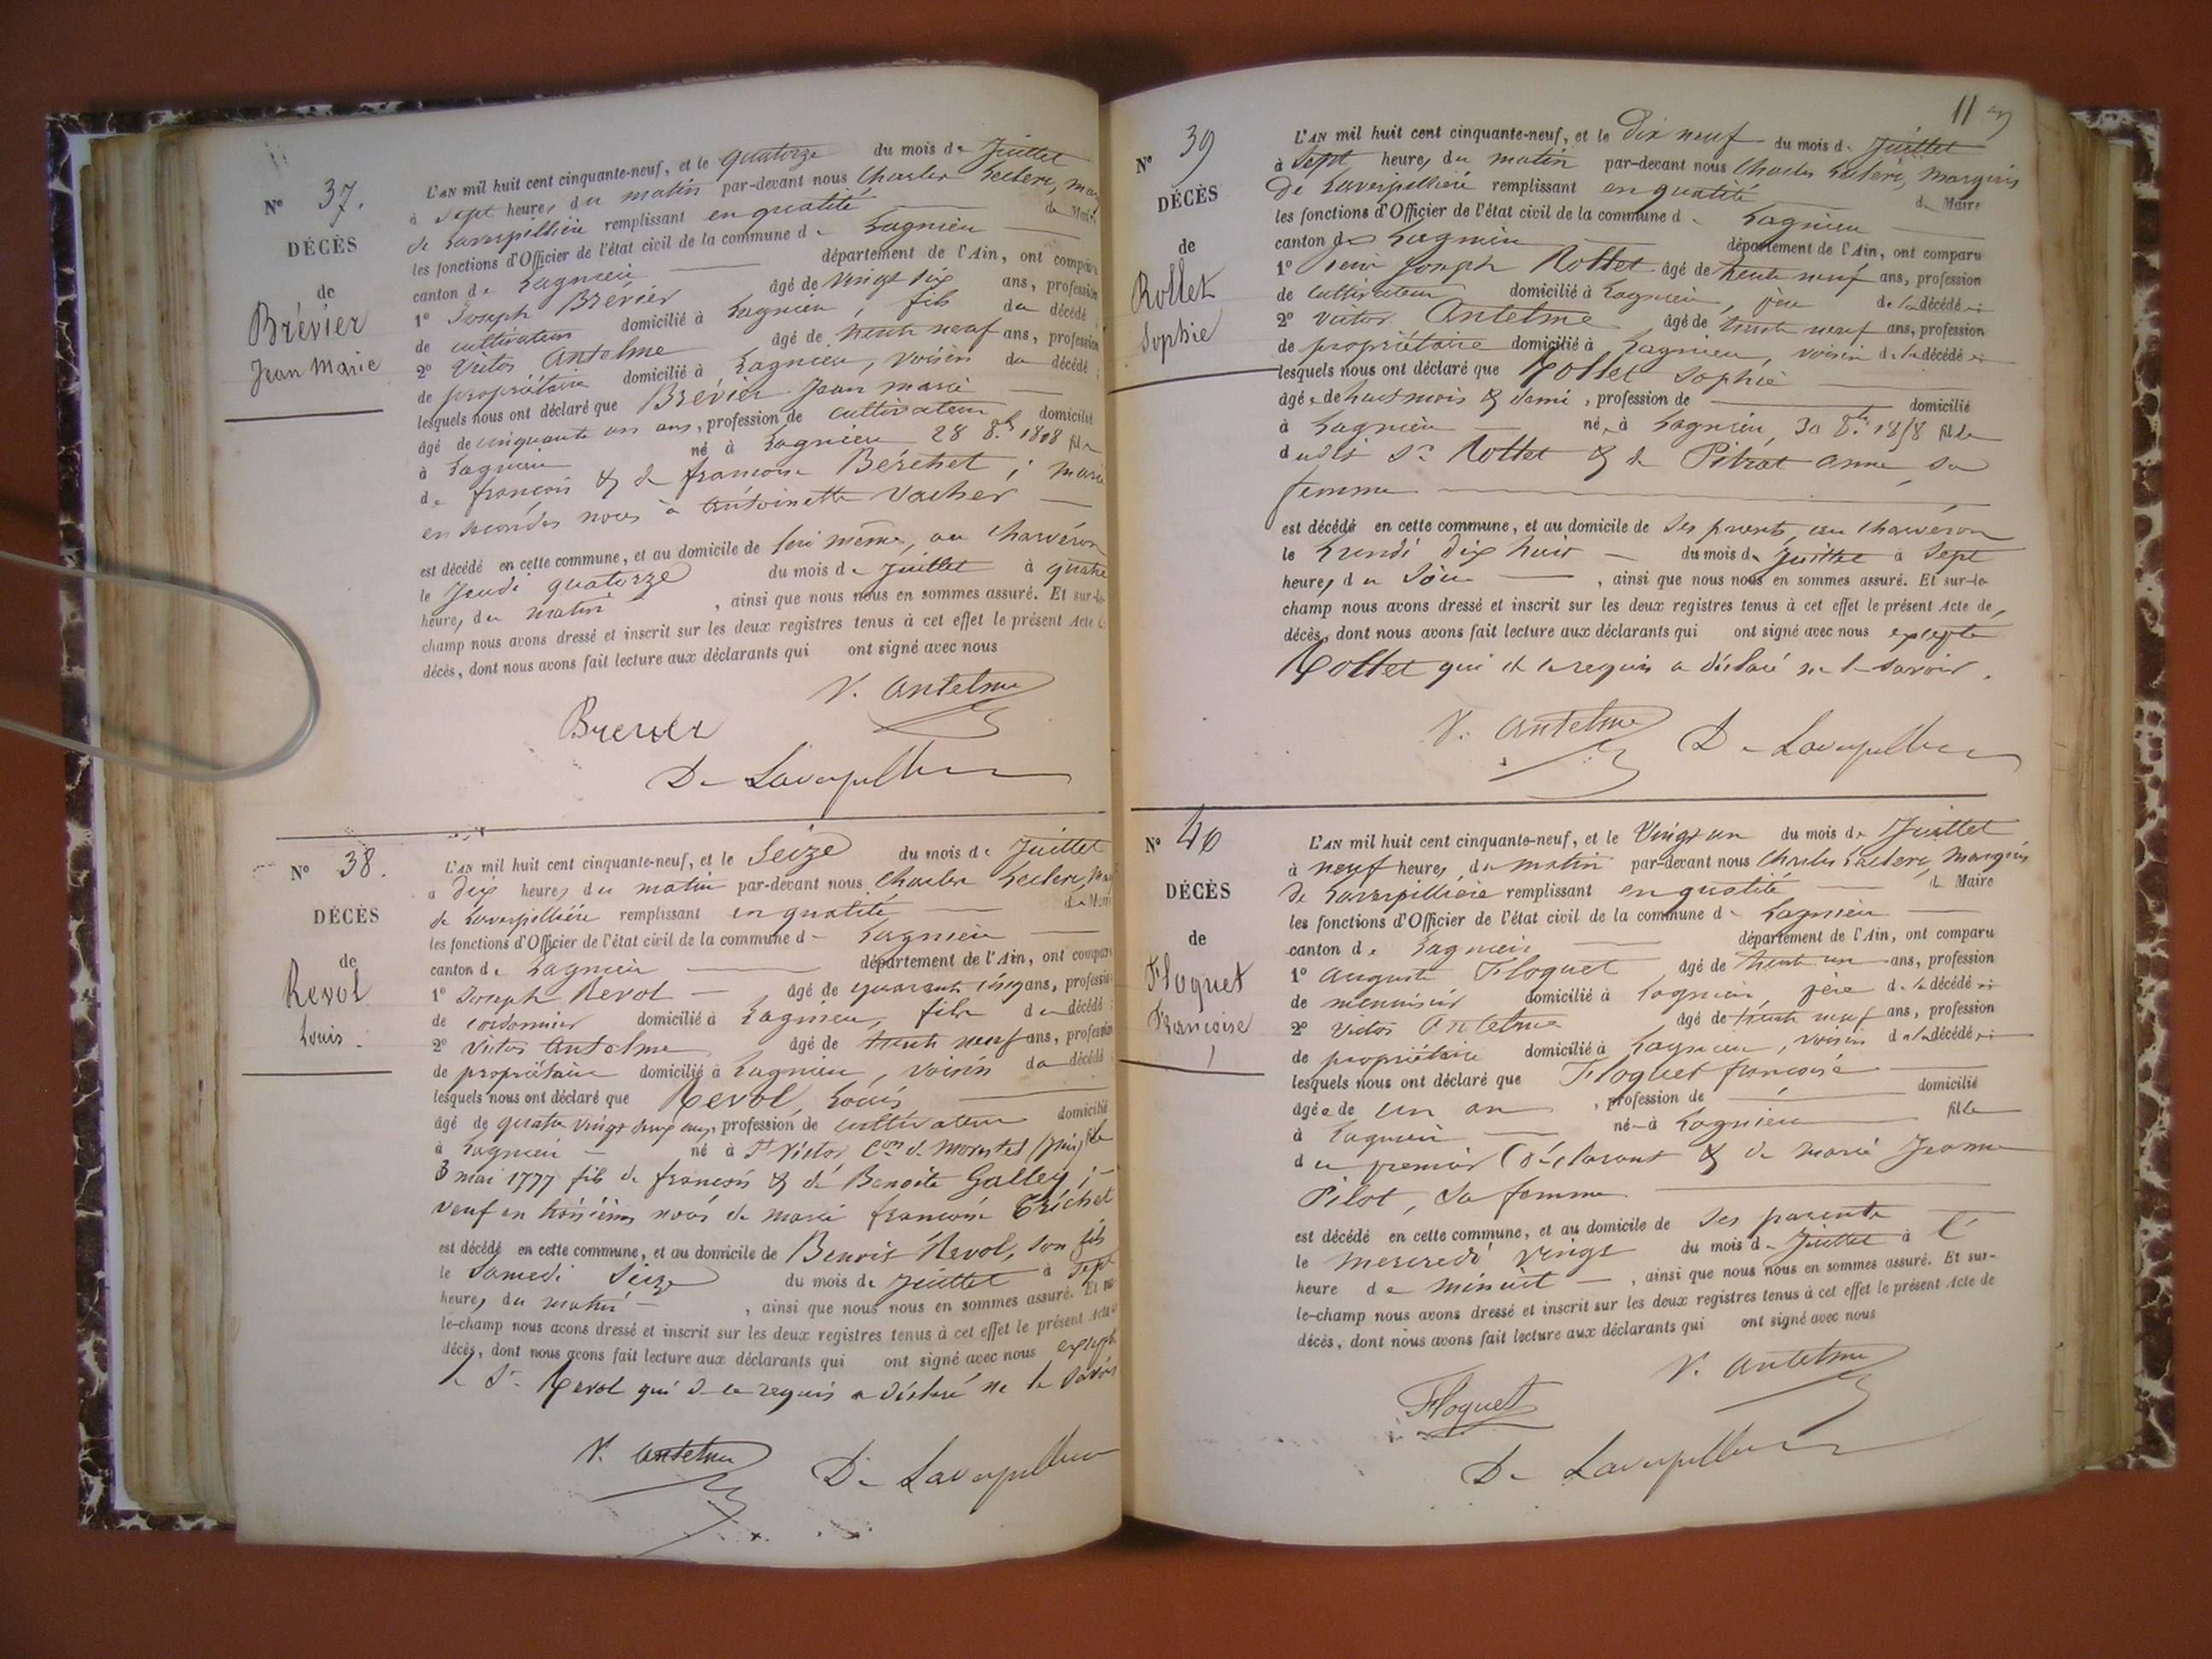 N° 37.
DÉCÈS
de
Brévier
Jean Marie
L'AN mil huit cent cinquante-neuf, et le quatorze du mois de Juillet
à Sept heures du matin par-devant nous Charles Leclerc, mar
de Laverpillière remplissant en qualité de Maire
les fonctions d'Officier de l'état civil de la commune de Lagnieu
canton de Lagnieu département de l'Ain, ont comparu
1° Joseph Brévier âgé de vingt six ans, profession
de cultivateur domicilié à Lagnieu, fils du décédé
2° Victor Antelme âgé de trente neuf ans, profession
de propriétaire domicilié à Lagnieu, voisin du décédé;
lesquels nous ont déclaré que Brévier Jean marie
âgé de cinquante un ans, profession de cultivateur domicilié
à Lagnieu né à Lagnieu 28 8.bre 1808 fils
de françois & de françoise Bérechet; marié
en secondes noces à Antoinette Vacher
est décédé en cette commune, et au domicile de lui même, au Charvéron
le Jeudi quatorze du mois de Juillet à quatre
heures du matin , ainsi que nous nous en sommes assuré. Et sur-le-
champ nous avons dressé et inscrit sur les deux registres tenus à cet effet le présent Acte de
décès, dont nous avons fait lecture aux déclarants qui ont signé avec nous
V. Antelme
Brevier
De Laverpilliere
N° 38.
DÉCÈS
de
Revol
Louis.
L'AN mil huit cent cinquante-neuf, et le Seize du mois de Juillet
à dix heures du matin par-devant nous Charles Leclerc, Mar
de Laverpillière remplissant en qualité de Maire
les fonctions d'Officier de l'état civil de la commune de Lagnieu
canton de Lagnieu département de l'Ain, ont comparu
1° Joseph Revol âgé de quarante cinq ans, profession
de cordonnier domicilié à Lagnieu, fils du décédé
2° Victor Antelme âgé de trente neuf ans, profession
de propriétaire domicilié à Lagnieu, voisin du décédé
lesquels nous ont déclaré que Revol, Louis
âgé de quatre vingt deux ans, profession de cultivateur domicilié
à Lagnieu né à St Victor, Con de Morestel fils
3 mai 1777 fils de françois & de Benoite Galley;
veuf en troisièmes noces de marie françoise Tréchet
est décédé en cette commune, et au domicile de Benoit Revol, son fils
le Samedi Seize du mois de Juillet à Sept
heures du matin , ainsi que nous nous en sommes assuré. Et sur
le-champ nous avons dressé et inscrit sur les deux registres tenus à cet effet le présent Acte de
décès, dont nous avons fait lecture aux déclarants qui ont signé avec nous excepté
le Sr Revol qui de ce requis a déclaré ne le savoir
V. Antelme De Laverpilliere
11
N° 39
DÉCÈS
de
Rollet
Sophie
L'AN mil huit cent cinquante-neuf, et le Dix neuf du mois de Juillet
à Sept heures du matin par-devant nous Charles Leclerc, marquis
De Laverpillière remplissant en qualité de Maire
les fonctions d'Officier de l'état civil de la commune de Lagnieu
canton de Lagnieu département de l'Ain, ont comparu
1° Joseph Rollet âgé de trente neuf ans, profession
de cultivateur domicilié à Lagnieu, père de la décédée;
2° Victor Antelme âgé de trente neuf ans, profession
de propriétaire domicilié à Lagnieu, voisin de la décédée;
lesquels nous ont déclaré que Rollet Sophie
âgée de huit mois & demi, profession de domicilié
à Lagnieu née à Lagnieu, 30 8.bre 1858 fille
dudit Sr Rollet & de Pitrat anne, sa
femme
est décédé en cette commune, et au domicile de Ses parents, au Charvéron
le Lundi dix huit du mois de Juillet à Sept
heures du Soir , ainsi que nous nous en sommes assuré. Et sur-le-
champ nous avons dressé et inscrit sur les deux registres tenus à cet effet le présent Acte de
décès, dont nous avons fait lecture aux déclarants qui ont signé avec nous excepté
Rollet qui de ce requis a déclaré ne le savoir.
V. Antelme De Laverpilliere
N° 40
DÉCÈS
de
Floquet
Françoise
L'AN mil huit cent cinquante-neuf, et le Vingt un du mois de Juillet
à neuf heures du matin par-devant nous Charles Leclerc, Marquis
de Laverpillière remplissant en qualité de Maire
les fonctions d'Officier de l'état civil de la commune de Lagnieu
canton de Lagnieu département de l'Ain, ont comparu
1° Auguste Floquet âgé de trente un ans, profession
de menuisier domicilié à Lagnieu, père de la décédée;
2° Victor Antelme âgé de trente neuf ans, profession
de propriétaire domicilié à Lagnieu, voisin de la décédée;
lesquels nous ont déclaré que Floquet françoise
âgée de un an , profession de domicilié
à Lagnieu née à Lagnieu fille
du premier Déclarant & de Marie Jeanne
Pilot, sa femme
est décédé en cette commune, et au domicile de Ses parents
le mercredi vingt du mois de Juillet à l'
heure de minuit , ainsi que nous nous en sommes assuré. Et sur-
le-champ nous avons dressé et inscrit sur les deux registres tenus à cet effet le présent Acte de
décès, dont nous avons fait lecture aux déclarants qui ont signé avec nous
V. Antelme
Floquet
De Laverpilliere